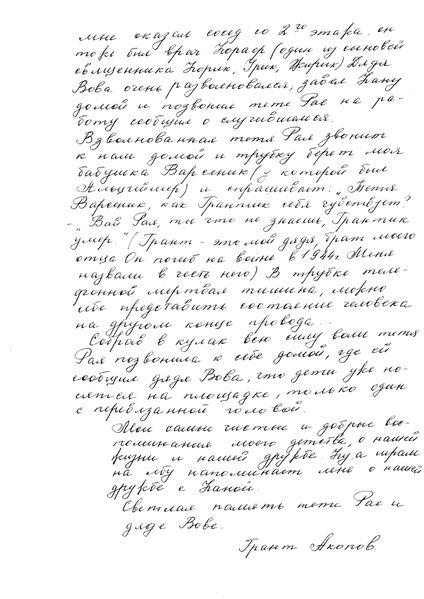 мне оказал сосед со 2го этажа. он
тоже был врач Корлор (один из сыновей
священника Корлик, Грик, Жирик) Дядя
Вова очень разволновался, забрал Кану
домой и позвонил тете Рае на ра-
боту сообщил о случившемся.
Взволнованная тетя Рая звонит
к нам домой и трубку берет моя
бабушка Варсеник (у которой был
Альцгеймер) и спрашивает: „Тетя
Варсеник, как Грантик себя чувствует?
- „Вай Рая, ты что не знаешь, Грантик
умер." (Грант - это мой дядя, брат моего
отца Он погиб на войне в 1944г. Меня
назвали в честь него) В трубке теле-
фонной мертвая тишина, можно
себе представить состояние человека
на другом конце провода...
Собрав в кулак всю силу воли тетя
Рая позвонила к себе домой, где ей
сообщил дядя Вова, что дети уже но-
сятся на площадке, только один
с перевязанной головой.
Мои самые чистые и добрые вос-
поминания моего детства, о нашей
жизни и нашей дружбе Ну, а шрам
на лбу напоминает мне о нашей
дружбе с Каной.
Светлая память тете Рае и
дяде Вове.
Грант Акопов.